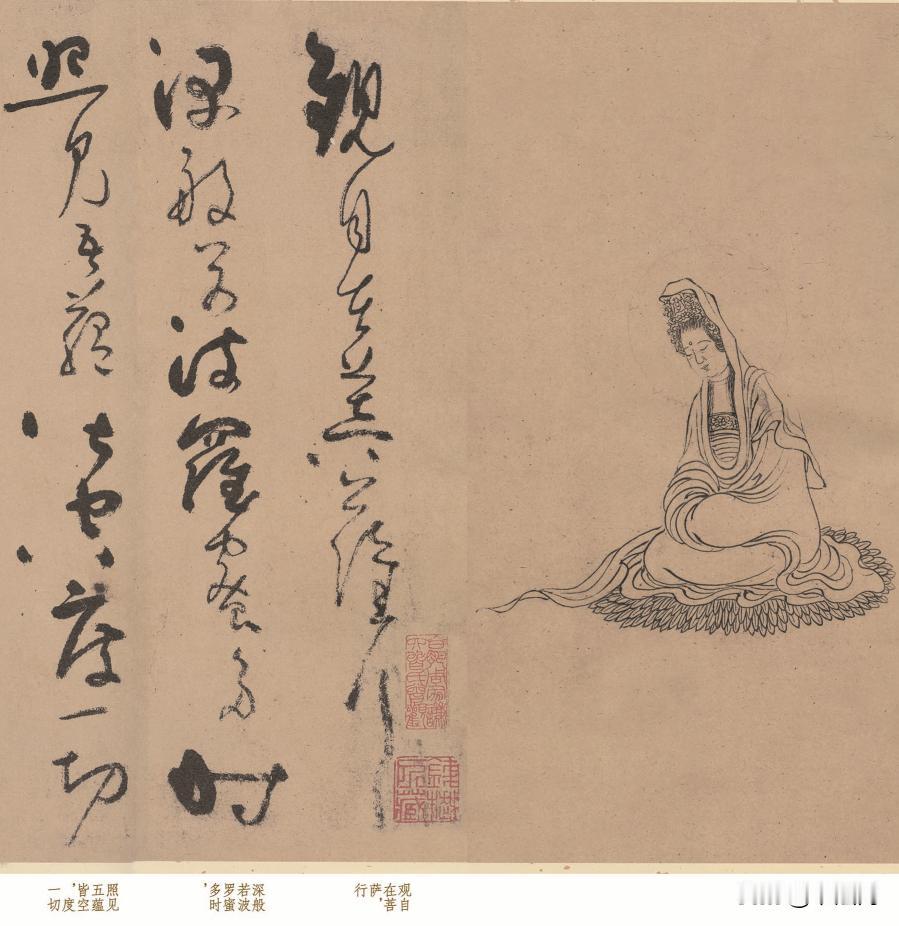 觀自在菩薩行
深般若波羅蜜多時
照見五蘊皆空度一切
观自在善萨,行
深般若波罗蜜多时,
照见五蕴皆空,度一切